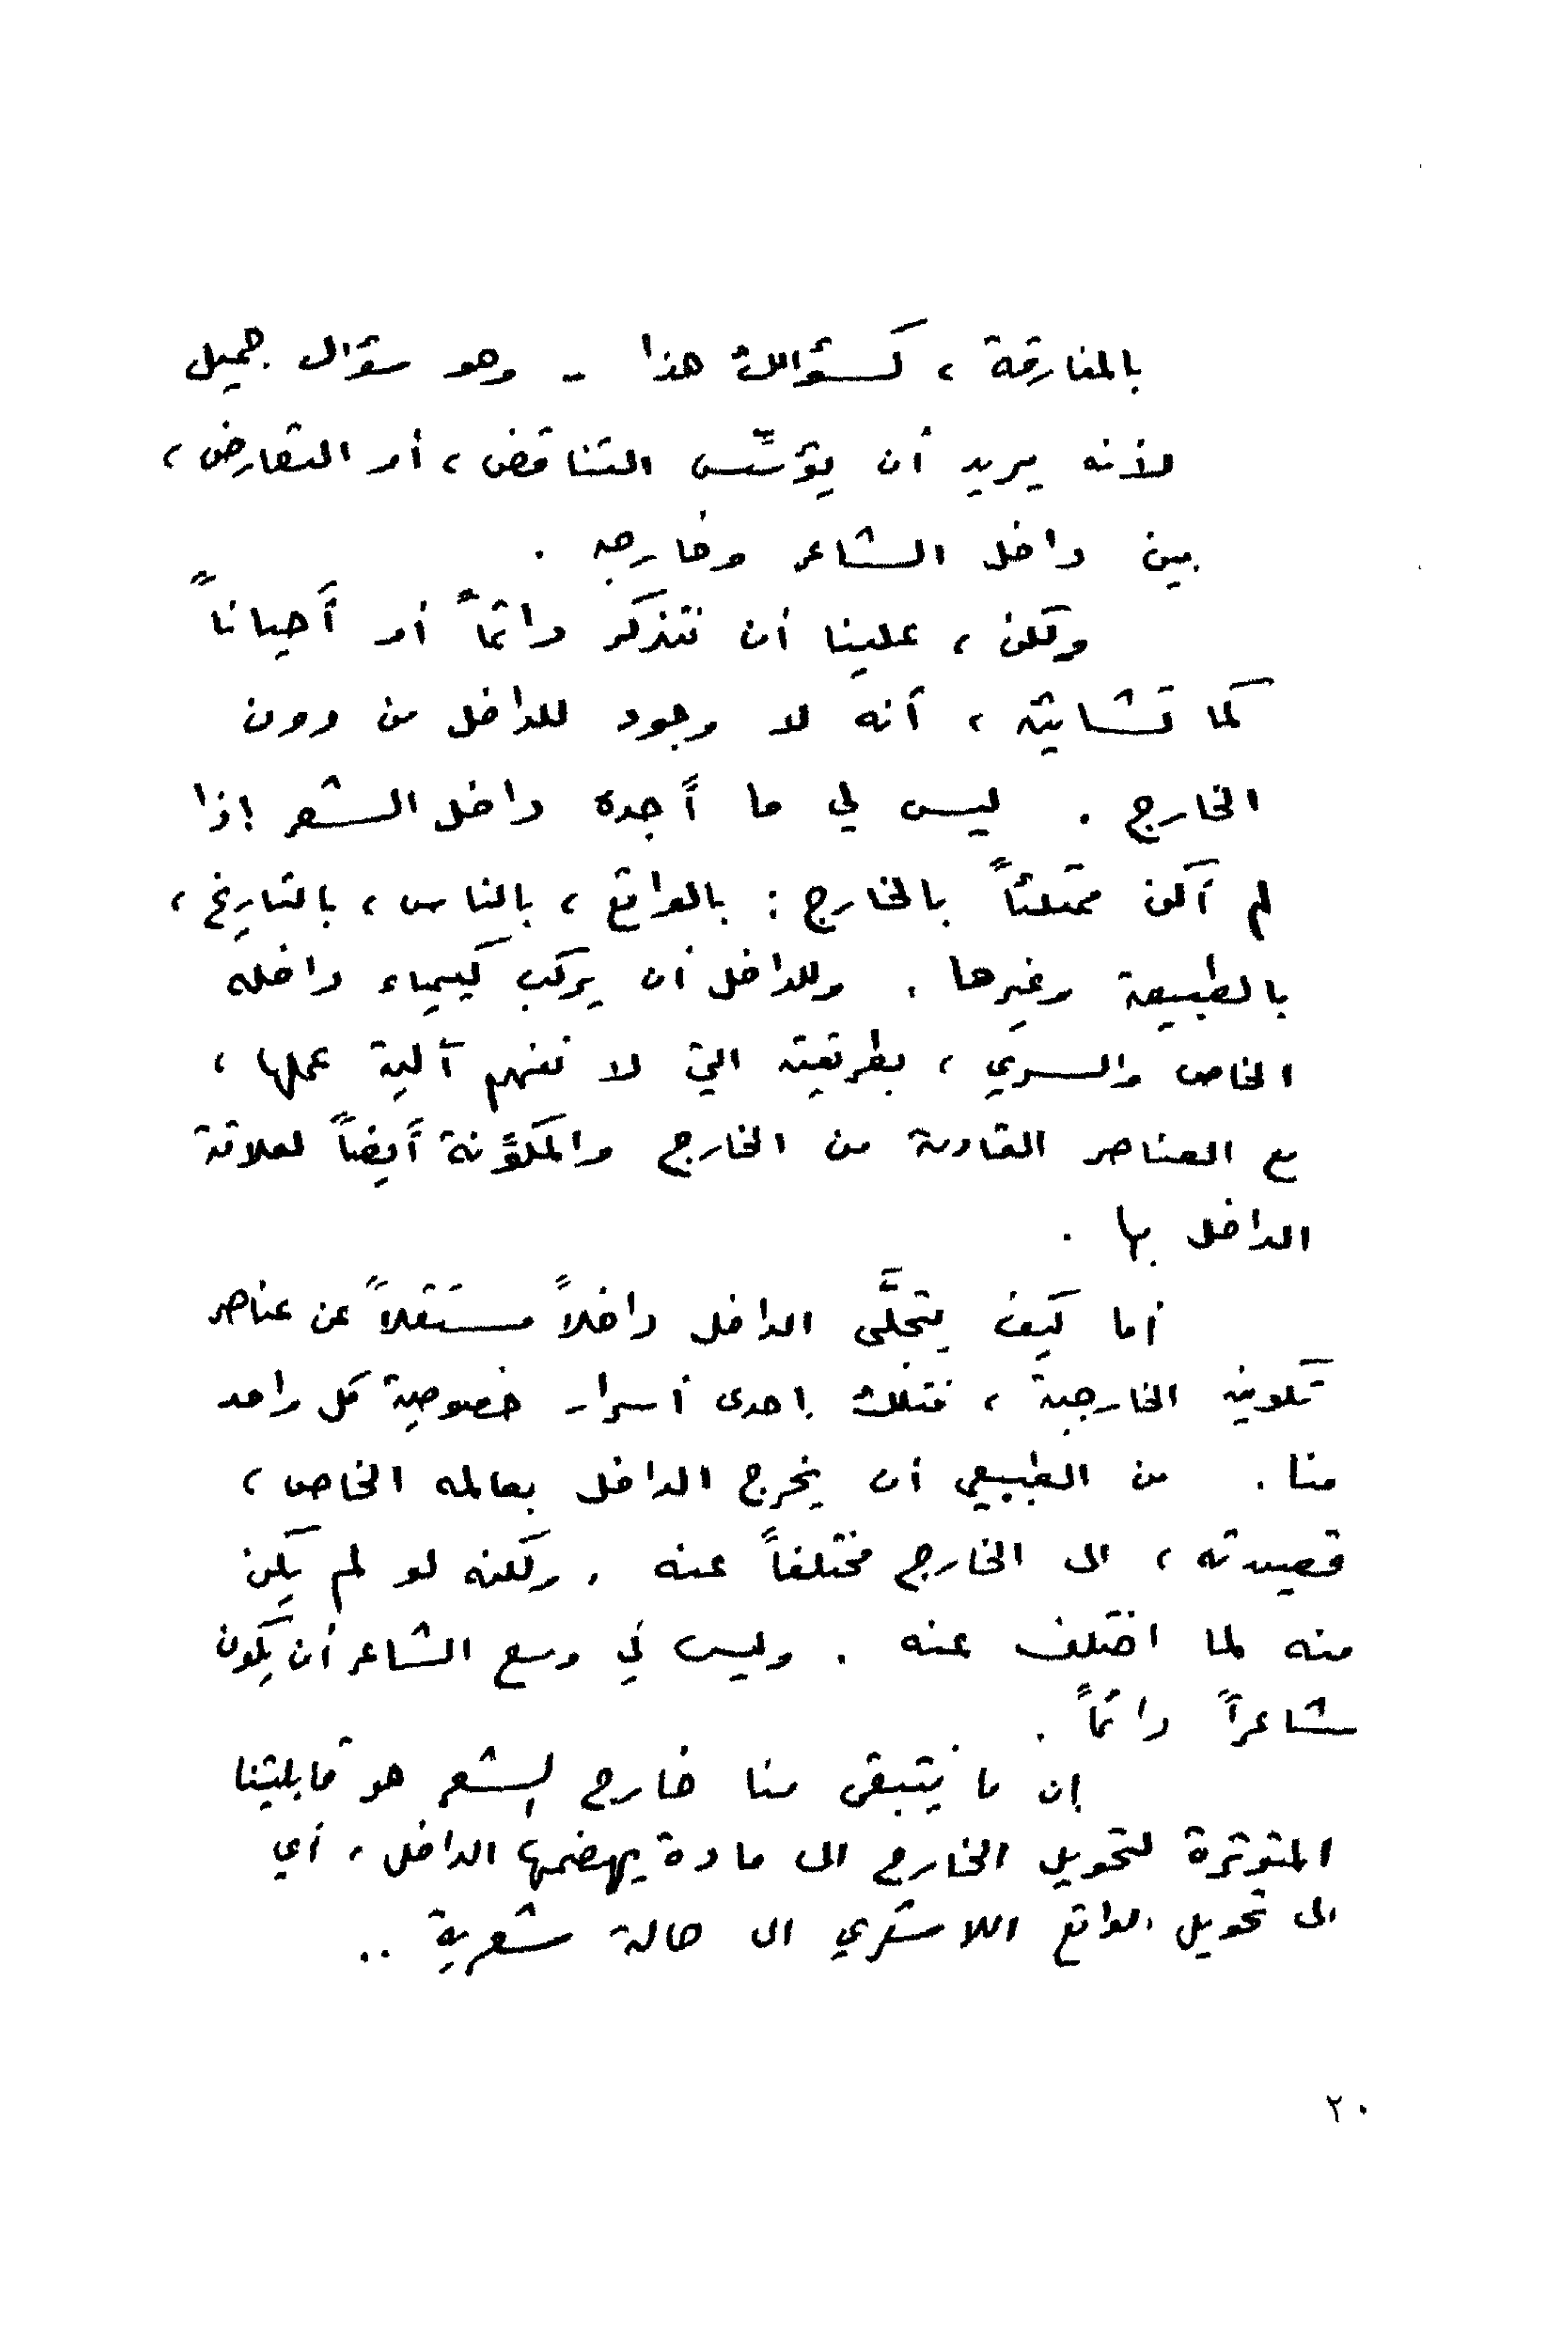 بالمفارقة ، كسؤالك هذا - وهو سؤال جميل
لأنه يريد أن يؤسّس التناقض ، أو التعارض ،
بين داخل الشاعر وخارجه .
ولكن ، علينا أن نتذكر دائماً أو أحياناً
كما تشائين ، أنه لا وجود للداخل من دون
الخارج . ليس لي ما أجده داخل الشعر إذا
لم أكن ممتلئاً بالخارج : بالواقع ، بالناس ، بالتاريخ ،
بالطبيعة وغيرها . وللداخل أن يركب كيمياء داخله
الخاص والسري ، بطريقته التي لا نفهم آلية عملها ،
مع العناصر القادمة من الخارج والمكوّنة أيضاً لعلاقة
الداخل بها .
أما كيف يتجلَّى الداخل داخلاً مستقلاً عن عناصر
تكوينه الخارجية ، فتلك إحدى أسرار خصوصية كل واحد
منا . من الطبيعي أن يخرج الداخل بعالمه الخاص ،
قصيدته ، الى الخارج مختلفاً عنه . ولكنه لو لم يكن
منه لما اختلف عنه . وليس في وسع الشاعر أن يكون
شاعراً دائماً .
إن ما يتبقى منا خارج الشعر هو قابليتنا
المتوترة لتحويل الخارج الى مادة يهضمها الداخل ، أي
الى تحويل الواقع اللاشعري الى حالة شعرية ..
٢٠